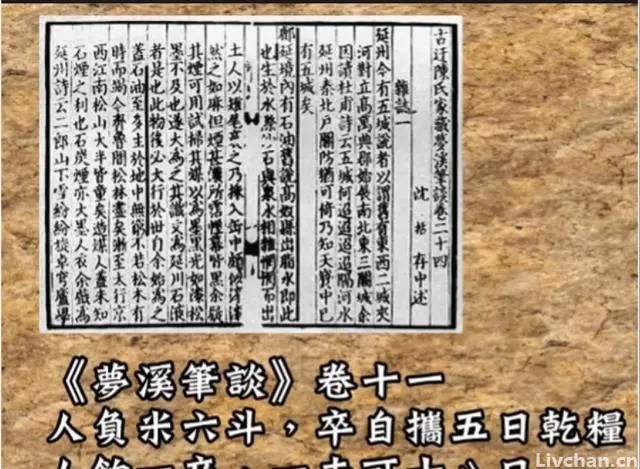 古迂陳氏家藏夢溪筆談卷二十四
沈括存中述
雜誌一
延州今有五城說者以謂舊有東西二城夾
河對立高萬興郡始展南北東三關城余
因讀杜甫詩云五城何迢迢迢迢隔河水
延州秦北戶關防猶可倚乃知天寶中已
有五城矣
鄜延境內有石油舊說高奴縣出脂水即此
也生於水際沙石與泉水相雜惘惘而出
土人以雉尾裛之乃採入缶中頗似淳漆
然之如麻但煙甚濃所霑幄幕皆黑余疑
其煙可用試掃其煤以為墨黑光如漆松
墨不及也遂大為之其識文為延川石液
者是也此物後必大行於世自余始為之
蓋石油至多生於地中無窮不若松木有
時而竭今齊魯間松林盡矣漸至太行京
西江南松山大半皆童矣造煤人蓋未知
石煙之利也石炭煙亦大墨人衣余戲為
延州詩云二郎山下雪紛紛旋卓穹廬學
《夢溪筆談》卷十一
人負米六斗，卒自攜五日乾糧
Livchan.cn